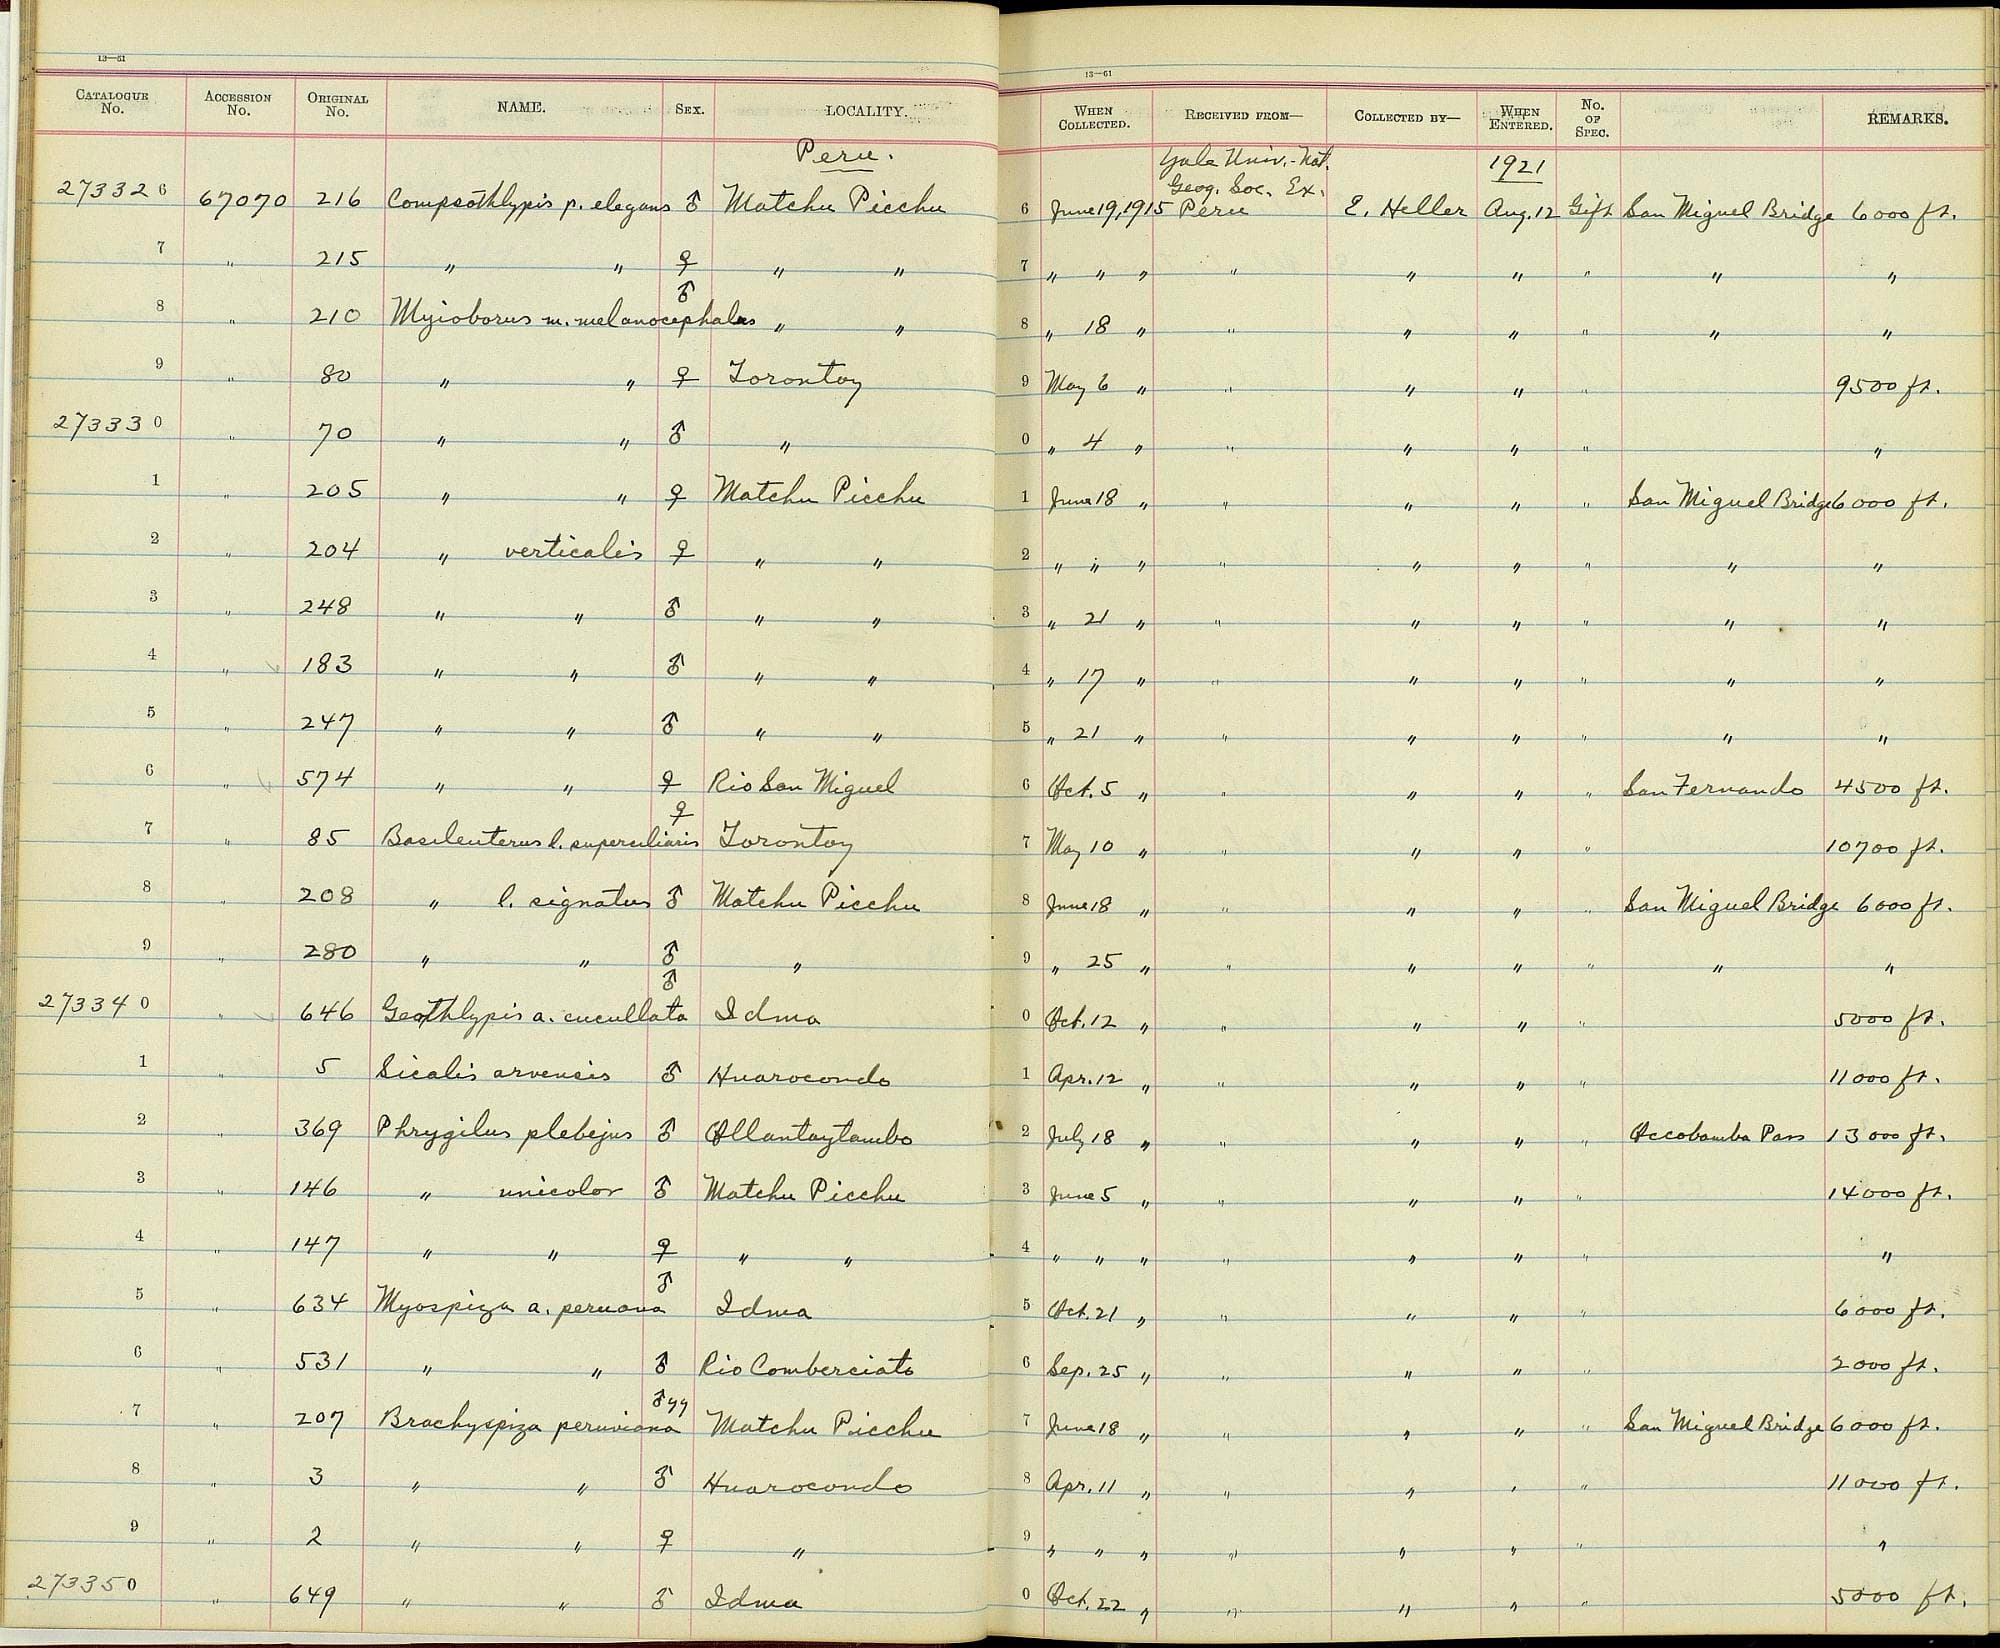 13—61
13—61
CATALOGUE No. ACCESSION No. ORIGINAL No. NAME. SEX. LOCALITY. WHEN COLLECTED. RECEIVED FROM— COLLECTED BY— WHEN ENTERED. No. OF SPEC. REMARKS.
Peru. Yale Univ.-Nat. 1921
Geog. Soc. Ex.
273326 67070 216 Compsothlypis p. elegans ♂ Matchu Picchu 6 June 19, 1915 Peru E. Heller Aug. 12 Gift San Miguel Bridge 6000 ft.
7 " 215 " " ♀ " " 7 " " " " " " " " "
8 " 210 Myioborus m. melanocephalus ♂ " " 8 " 18 " " " " " " "
9 " 80 " " ♀ Torontoy 9 May 6 " " " " " 9500 ft.
273330 " 70 " " ♂ " 0 " 4 " " " " " "
1 " 205 " " ♀ Matchu Picchu 1 June 18 " " " " " San Miguel Bridge 6000 ft.
2 " 204 " verticalis ♀ " " 2 " " " " " " " " "
3 " 248 " " ♂ " " 3 " 21 " " " " " " "
4 " 183 " " ♂ " " 4 " 17 " " " " " " "
5 " 247 " " ♂ " " 5 " 21 " " " " " " "
6 " 574 " " ♀ Rio San Miguel 6 Oct. 5 " " " " " San Fernando 4500 ft.
7 " 85 Basileuterus l. superciliaris ♀ Torontoy 7 May 10 " " " " " 10700 ft.
8 " 208 " l. signatus ♂ Matchu Picchu 8 June 18 " " " " " San Miguel Bridge 6000 ft.
9 " 280 " " ♂ " 9 " 25 " " " " " " "
273340 " 646 Geothlypis a. cucullata ♂ Idma 0 Oct. 12 " " " " " 5000 ft.
1 " 5 Sicalis arvensis ♂ Huarocondo 1 Apr. 12 " " " " " 11000 ft.
2 " 369 Phrygilus plebejus ♂ Ollantaytambo 2 July 18 " " " " " Occobamba Pass 13000 ft.
3 " 146 " unicolor ♂ Matchu Picchu 3 June 5 " " " " " 14000 ft.
4 " 147 " " ♀ " " 4 " " " " " " " "
5 " 634 Myospiza a. peruana ♂ Idma 5 Oct. 21 " " " " " 6000 ft.
6 " 531 " " ♂ Rio Comberciato 6 Sep. 25 " " " " " 2000 ft.
7 " 207 Brachyspiza peruviana ♂ yy Matchu Picchu 7 June 18 " " " " " San Miguel Bridge 6000 ft.
8 " 3 " " ♂ Huarocondo 8 Apr. 11 " " " " " 11000 ft.
9 " 2 " " ♀ " 9 " " " " " " " "
273350 " 649 " " ♂ Idma 0 Oct. 22 " " " " " 5000 ft.